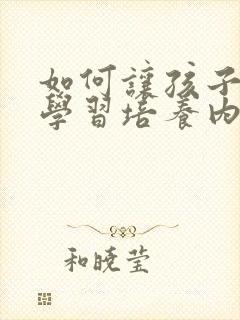 如何讓孩子
學習培養內
和曉莹